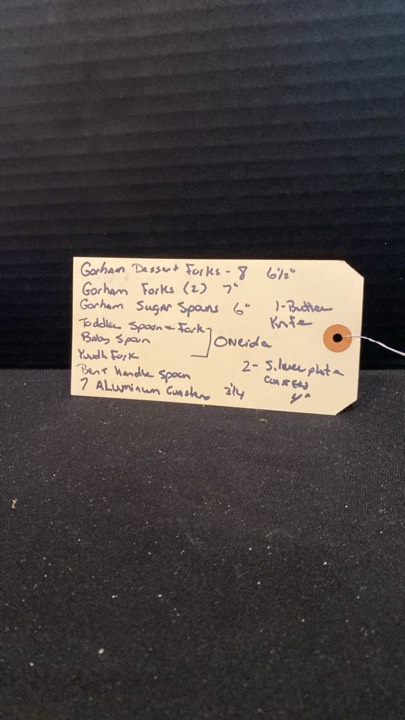 Gorham Dessert Forks - 8 6½"
Gorham Forks (2) 7"
Gorham Sugar Spoons 6"
1-Butter
Knife
Toddler Spoon + Fork
Baby Spoon
Youth Fork
Oneida
Bent Handle Spoon
7 Aluminum Coasters 3¼
2- Silverplate
Coasters
4"